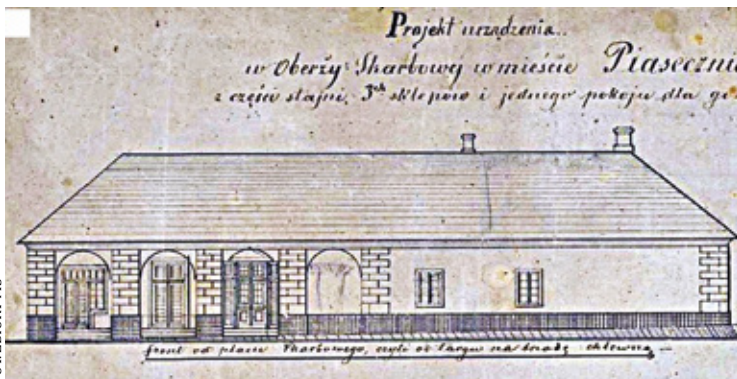 Projekt urządzenia..
w Oberży Skarbowej w mieście Piaseczni
z części stajni, 3ch sklepów i jednego pokoju dla go
front od placu Skarbowego, czyli od targu na